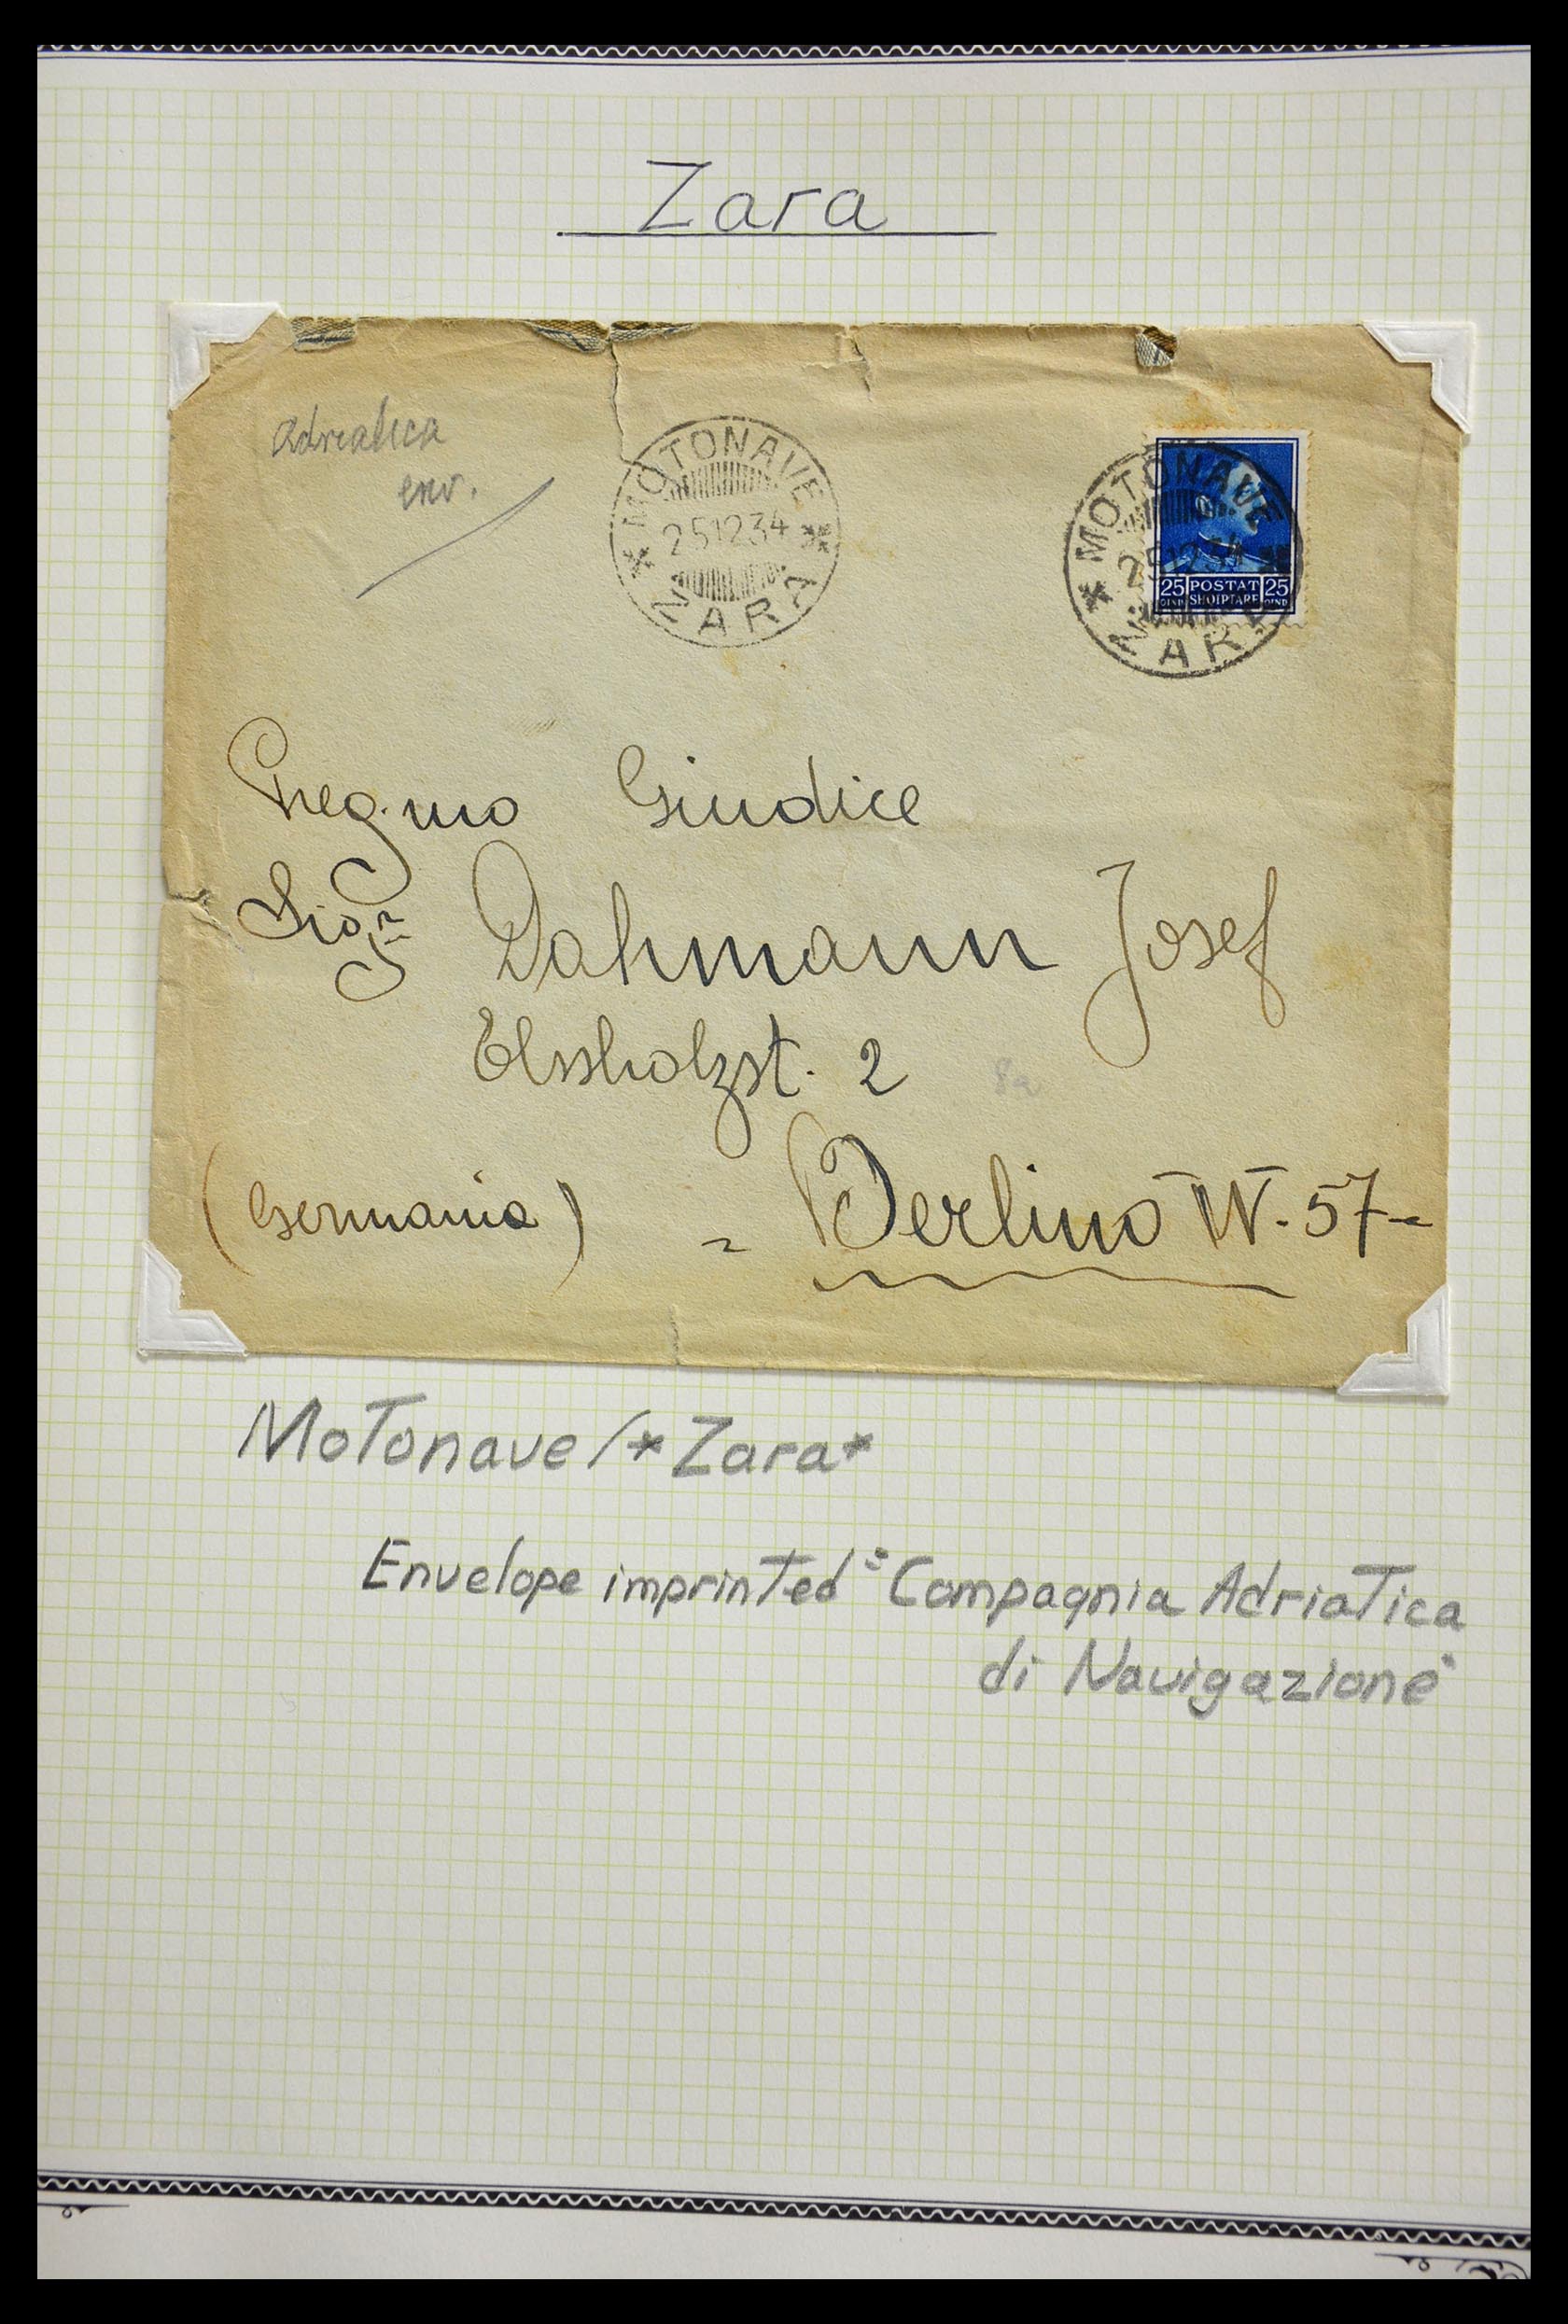 Zara
Adriatica
env.
* MOTONAVE *
25 12 34
ZARA
* MOTONAVE
25 12 34
ZAR
25 POSTAT 25
QIND SHQIPTARE QIND
Preg.mo Giudice
Sig.r Dahmann Josef
Elssholzst. 2
8a
(Germania) - Berlino W. 57-
Motonave/*Zara*
Envelope imprinted "Compagnia Adriatica
di Navigazione"